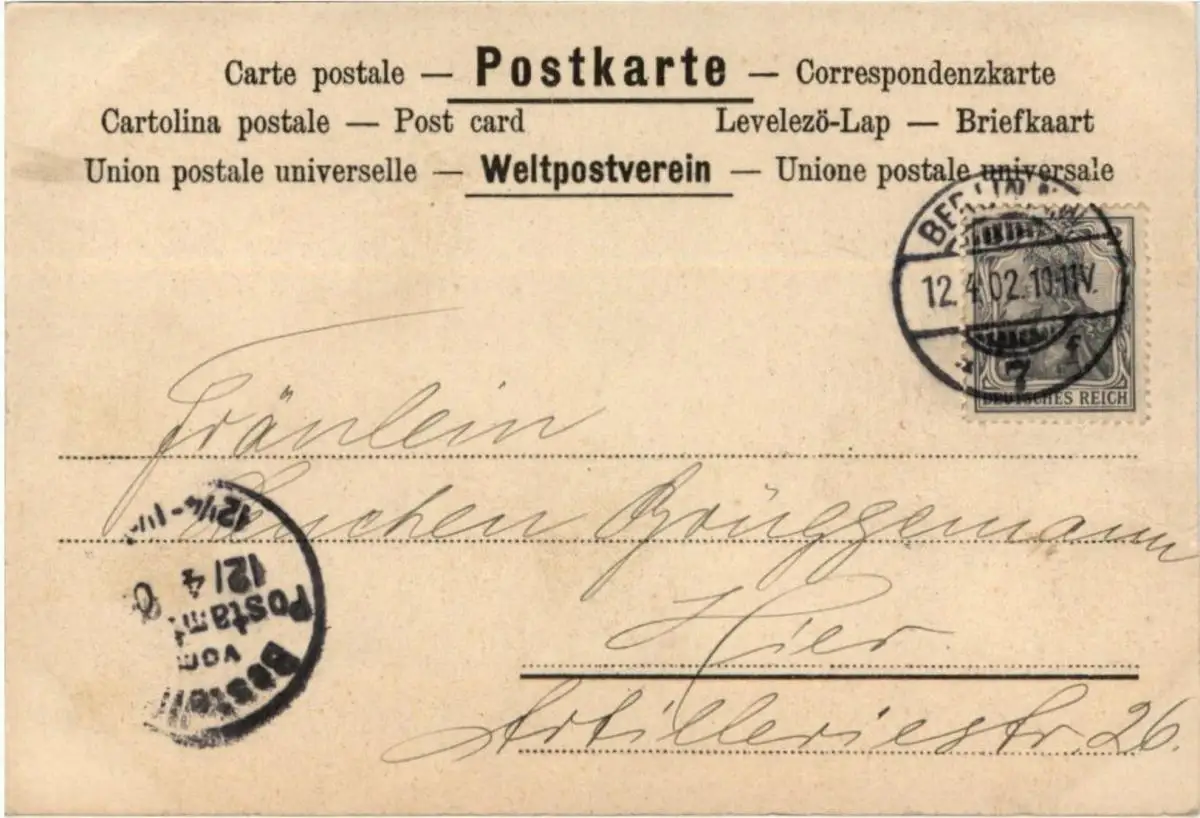 Carte postale — Postkarte — Correspondenzkarte
Cartolina postale — Post card Levelezö-Lap — Briefkaart
Union postale universelle — Weltpostverein — Unione postale universale
BERLIN
12.4.02.10-11V.
7
DEUTSCHES REICH
Fräulein
Brüggemann
Hier
Artilleriestr. 26.
Bestellt
vom
Postamt
12/4